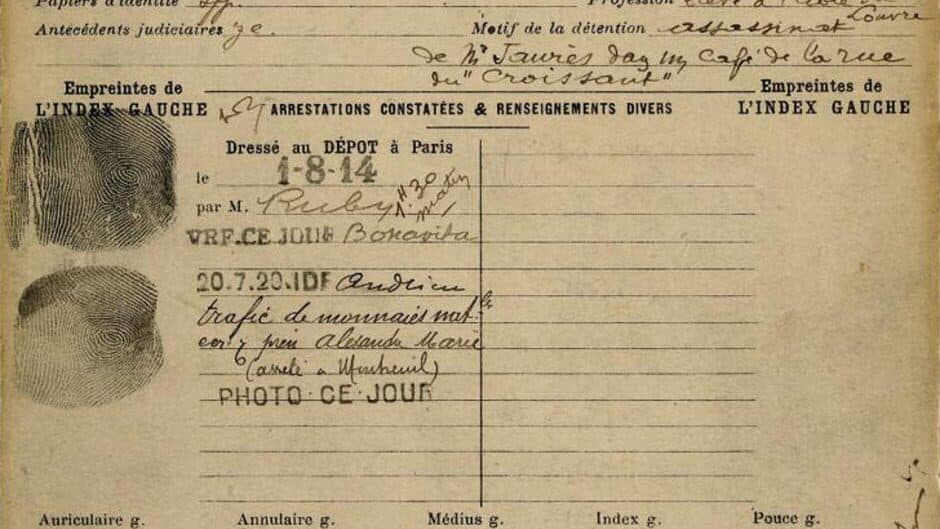 Papiers d'identité
Profession élève à l'École du
Louvre
Antécédents judiciaires
Motif de la détention assassinat
de Mr Jaurès dans un café de la rue
du "Croissant"
Empreintes de
L'INDEX GAUCHE
ARRESTATIONS CONSTATÉES & RENSEIGNEMENTS DIVERS
Empreintes de
L'INDEX GAUCHE
Dressé au DÉPOT à Paris
le 1-8-14
par M. Ruby 1H30
matin
VRF.CE JOUR Bonavita
20.7.20.IDF Andrieu
trafic de monnaies natle
prén Alexandre Marie
(arrêté à Montreuil)
PHOTO CE JOUR
Auriculaire g. Annulaire g. Médius g. Index g. Pouce g.